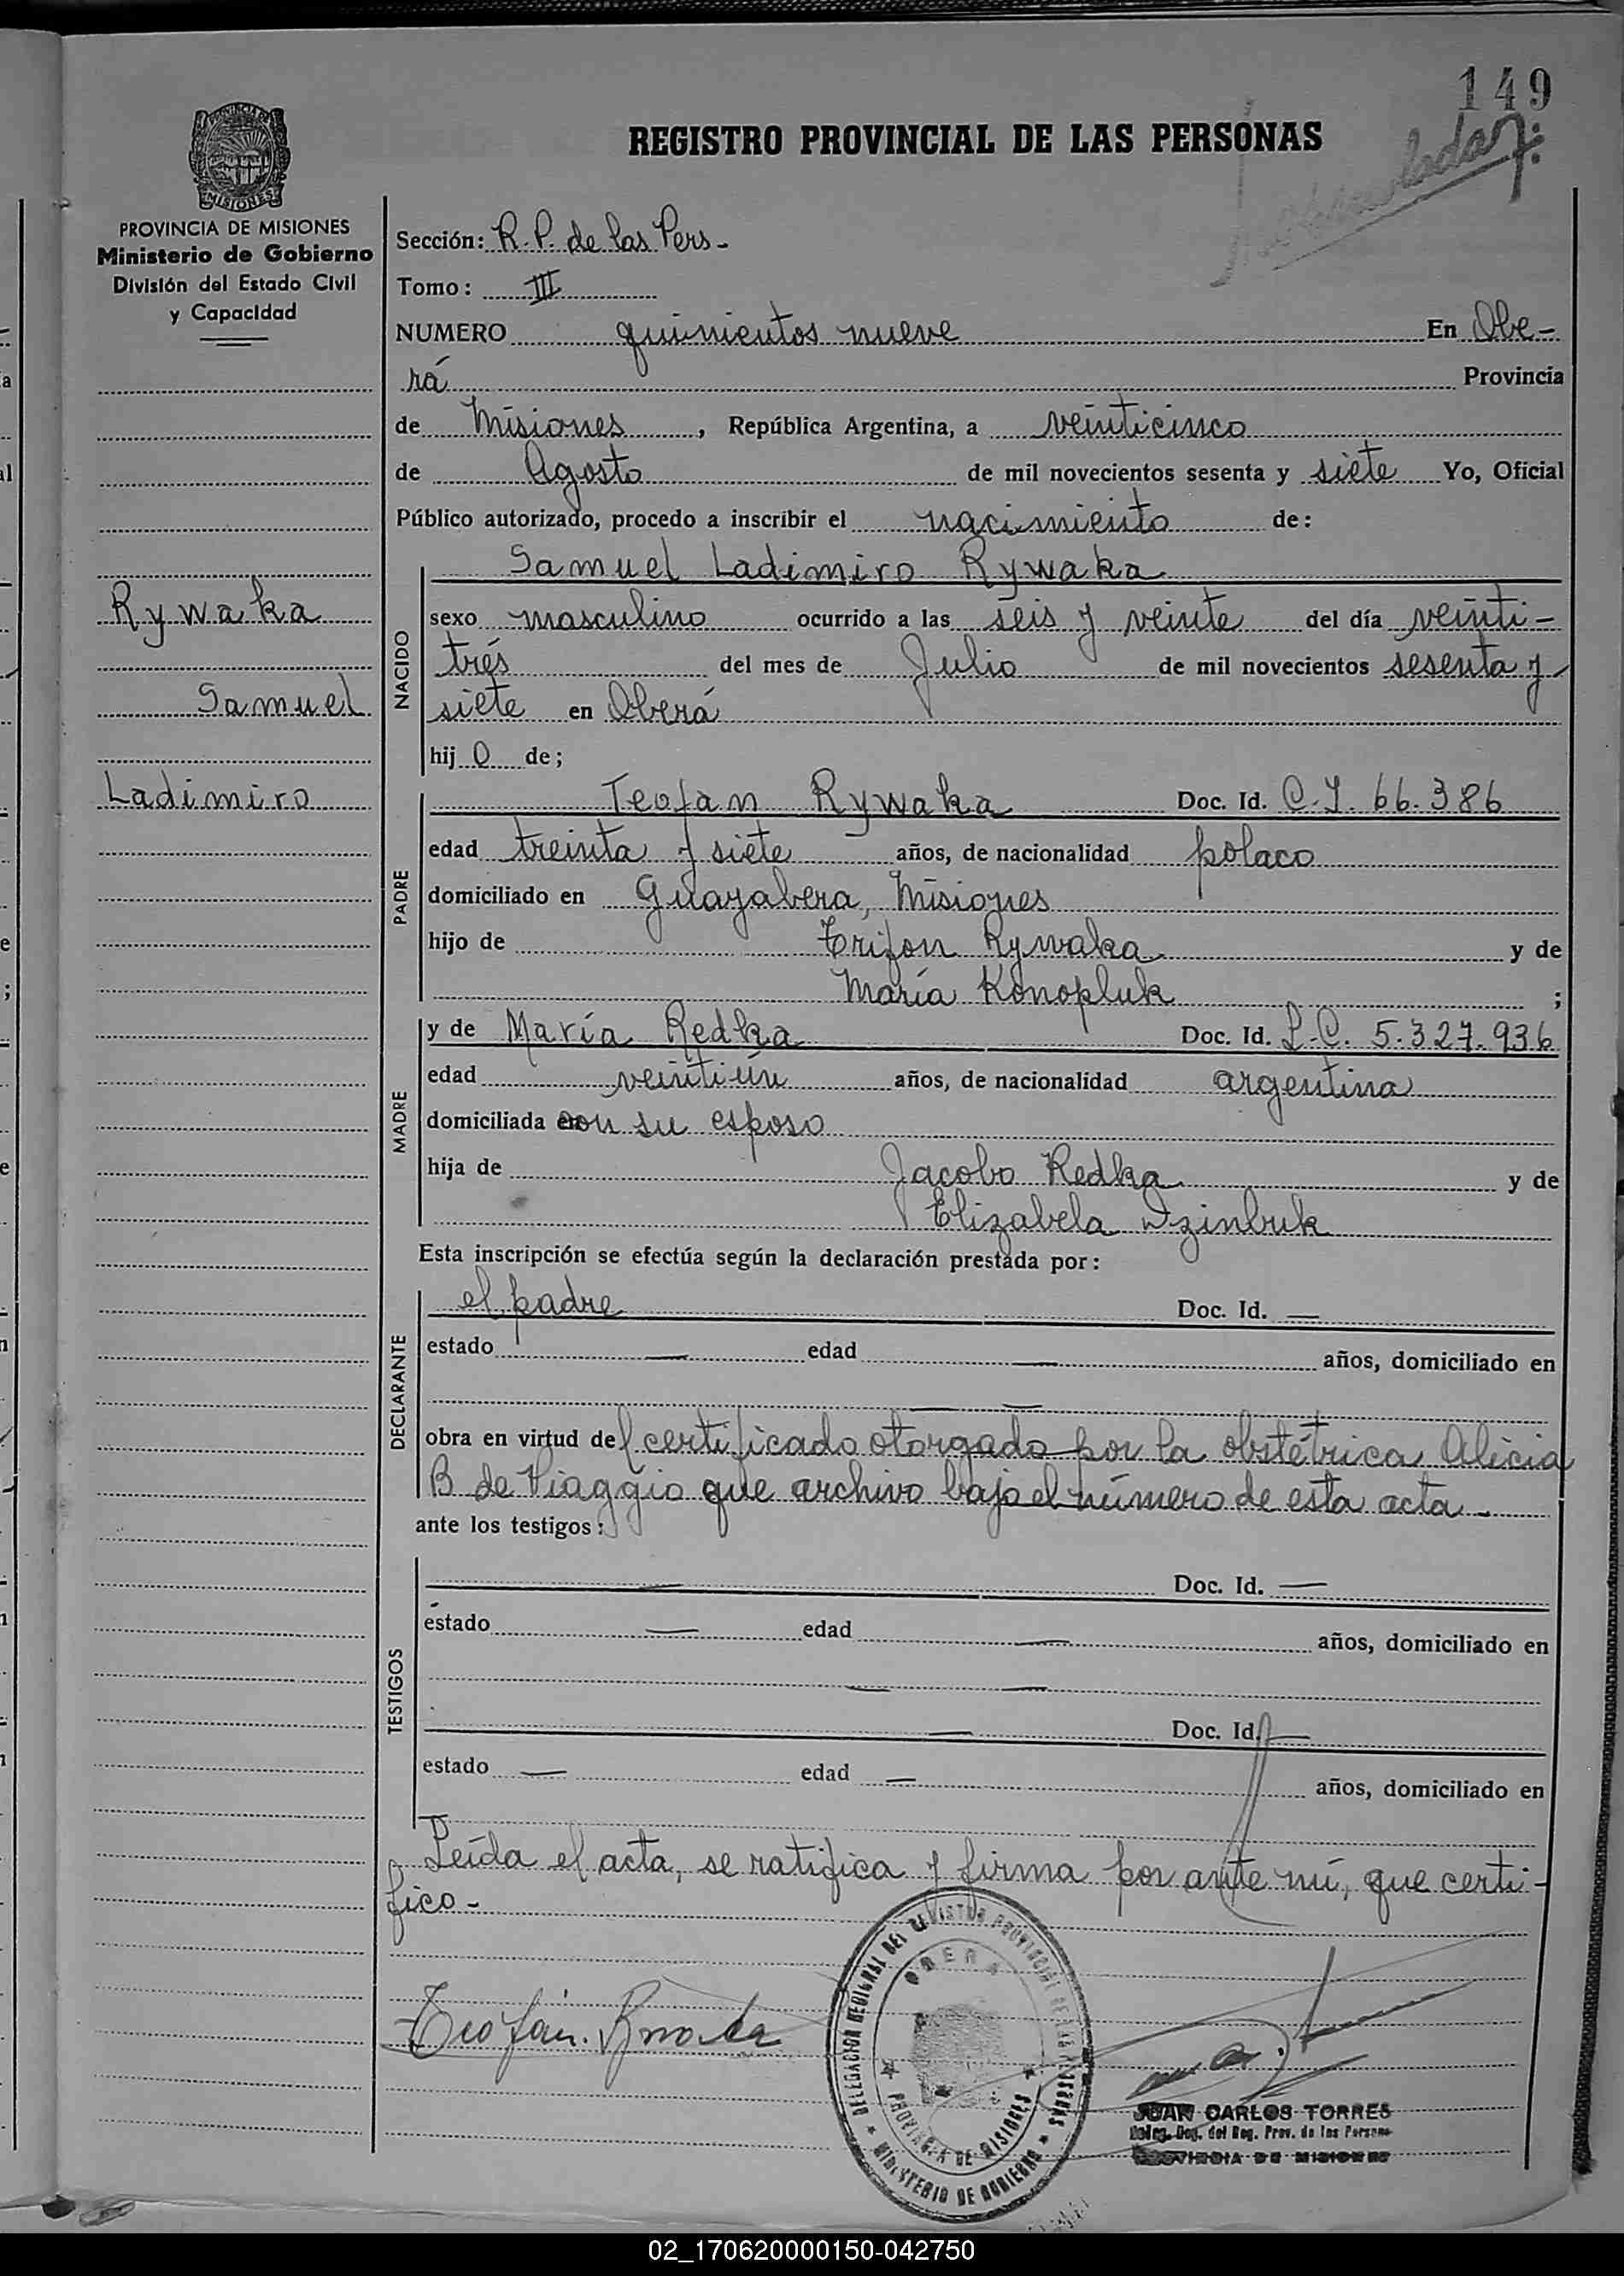 149
REGISTRO PROVINCIAL DE LAS PERSONAS
PROVINCIA DE MISIONES
Ministerio de Gobierno
División del Estado Civil
y Capacidad
Rywaka
Samuel
Ladimiro
Sección: R. P. de las Pers-
Tomo: III
NUMERO quinientos nueve En Obe-
rá Provincia
de Misiones, República Argentina, a veinticinco
de Agosto de mil novecientos sesenta y siete Yo, Oficial
Público autorizado, procedo a inscribir el nacimiento de:
NACIDO
Samuel Ladimiro Rywaka
sexo masculino ocurrido a las seis y veinte del día veinti-
trés del mes de Julio de mil novecientos sesenta y
siete en Oberá
hijo de;
PADRE
Teofan Rywaka Doc. Id. C.I. 66.386
edad treinta y siete años, de nacionalidad polaco
domiciliado en Guayabera, Misiones
hijo de Trifon Rywaka y de
María Konopluk ;
MADRE
y de María Redka Doc. Id. L.C. 5.327.936
edad veintiún años, de nacionalidad argentina
domiciliada con su esposo
hija de Jacobo Redka y de
Elizabela Dzinbuk
Esta inscripción se efectúa según la declaración prestada por:
DECLARANTE
el padre Doc. Id. —
estado — edad — años, domiciliado en
— —
obra en virtud del certificado otorgado por la obstétrica Alicia
B de Viaggio que archivo bajo el número de esta acta -
ante los testigos:
TESTIGOS
— Doc. Id. —
estado — edad — años, domiciliado en
— —
— Doc. Id. —
estado — edad — años, domiciliado en
Leída el acta, se ratifica y firma por ante mí, que certi-
fico -
Teofan Rywaka
DELEGACION REGIONAL DEL REGISTRO PROVINCIAL DE LAS PERSONAS
OBERA
PROVINCIA DE MISIONES
MINISTERIO DE GOBIERNO
JUAN CARLOS TORRES
Deleg. Reg. del Reg. Prov. de las Personas
PROVINCIA DE MISIONES
02_170620000150-042750